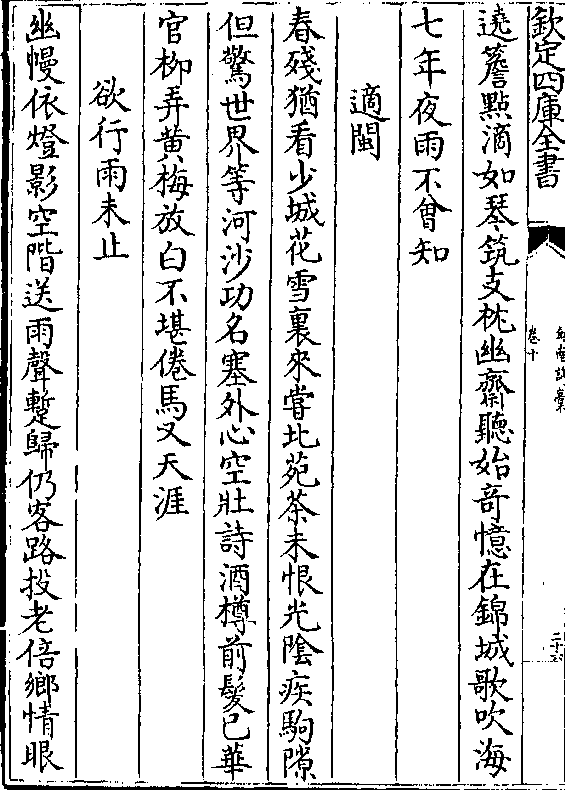 欽定四庫全書
卷十
遶簷點滴如琴筑支枕幽齋聽始奇憶在錦城歌吹海
七年夜雨不曾知
適閩
春殘猶看少城花雪裏來嘗北苑茶未恨光陰疾駒隙
但驚世界等河沙功名塞外心空壯詩酒樽前髮已華
官柳弄黃梅放白不堪倦馬又天涯
欲行雨未止
幽幔依燈影空階送雨聲蹔歸仍客路投老倍鄉情眼